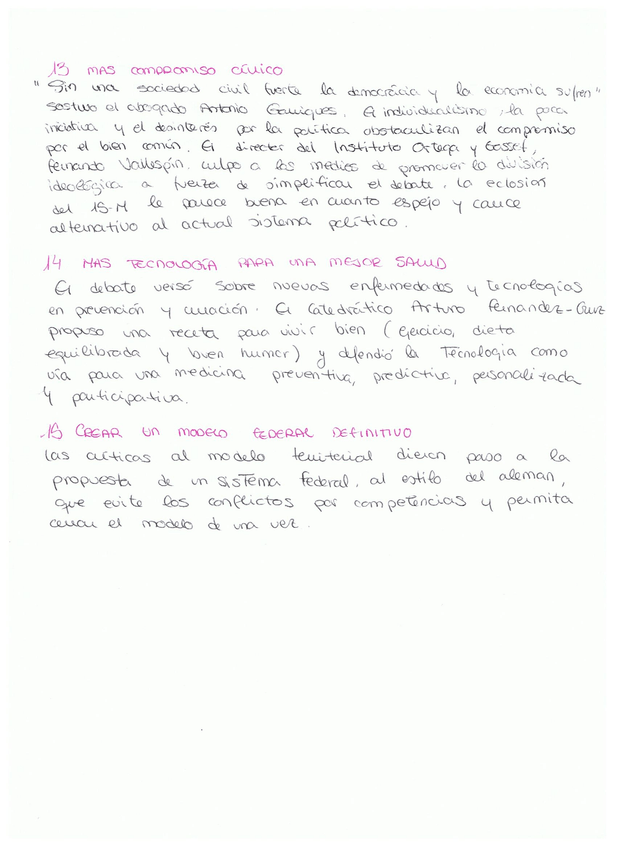 13 MAS COMPROMISO CÍVICO
"Sin una sociedad civil fuerte la democracia y la economía sufren"
sostuvo el abogado Antonio Garrigues. El individualismo, la poca
iniciativa y el desinterés por la política obstaculizan el compromiso
por el bien común. El director del Instituto Ortega y Gasset,
Fernando Vallespín, culpo a los medios de promover la división
ideológica a fuerza de simplificar el debate. La eclosion
del 15-M le parece buena en cuanto espejo y cauce
alternativo al actual sistema político.
14 MAS TECNOLOGÍA PARA UNA MEJOR SALUD
El debate versó sobre nuevas enfermedades y tecnologías
en prevención y curación. El Catedrático Arturo Fernandez-Cruz
propuso una receta para vivir bien (ejercicio, dieta
equilibrada y buen humor) y defendió la Tecnologia como
vía para una medicina preventiva, predictiva, personalizada
y participativa.
15 CREAR UN MODELO FEDERAL DEFINITIVO
Las críticas al modelo territorial dieron paso a la
propuesta de un sistema federal, al estilo del aleman,
que evite los conflictos por competencias y permita
cerrar el modelo de una vez.